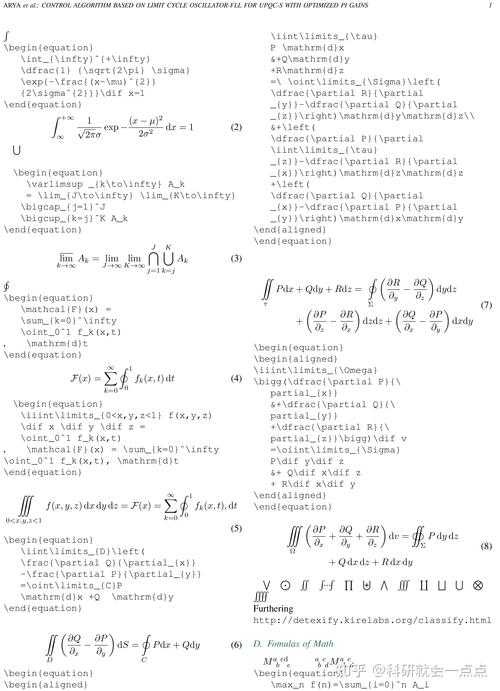 ARYA et al.: CONTROL ALGORITHM BASED ON LIMIT CYCLE OSCILLATOR-FLL FOR UPQC-S WITH OPTIMIZED PI GAINS 1
∫
\begin{equation}
\int_{\infty}^{+\infty}
\dfrac{1} {\sqrt{2\pi} \sigma}
\exp{-\frac{(x-\mu)^{2}}
{2\sigma^{2}}}\dif x=1
\end{equation}
∫_∞^{+∞} 1/(√2πσ) exp −(x − μ)²/2σ² dx = 1 (2)
⋃
\begin{equation}
\varlimsup _{k\to\infty} A_k
= \lim_{J\to\infty} \lim_{K\to\infty}
\bigcap_{j=1}^J
\bigcup_{k=j}^K A_k
\end{equation}
lim_{k→∞} A_k = lim_{J→∞} lim_{K→∞} ⋂_{j=1}^J ⋃_{k=j}^K A_k (3)
∮
\begin{equation}
\mathcal{F}(x) =
\sum_{k=0}^\infty
\oint_0^1 f_k(x,t)
, \mathrm{d}t
\end{equation}
F(x) = ∑_{k=0}^∞ ∮_0^1 f_k(x, t) dt (4)
\begin{equation}
\iiint\limits_{0<x,y,z<1} f(x,y,z)
\dif x \dif y \dif z =
\oint_0^1 f_k(x,t)
, \mathcal{F}(x) = \sum_{k=0}^\infty
\oint_0^1 f_k(x,t), \mathrm{d}t
\end{equation}
∭_{0<x,y,z<1} f(x, y, z) dx dy dz = F(x) = ∑_{k=0}^∞ ∮_0^1 f_k(x, t), dt
(5)
\begin{equation}
\iint\limits_{D}\left(
\frac{\partial Q}{\partial_{x}}
-\frac{\partial P}{\partial_{y}}
=\oint\limits_{C}P
\mathrm{d}x +Q \mathrm{d}y
\end{equation}
∬_D (∂Q/∂x − ∂P/∂y) dS = ∮_C Pdx + Qdy (6)
\begin{equation}
\begin{aligned}
\iint\limits_{\tau}
P \mathrm{d}x
&+Q\mathrm{d}y
+R\mathrm{d}z
=\ \oint\limits_{\Sigma}\left(
\dfrac{\partial R}{\partial
_{y}}-\dfrac{\partial Q}{\partial
_{z}}\right)\mathrm{d}y\mathrm{d}z\\
&+\left(
\dfrac{\partial P}{\partial
\iint\limits_{\tau}
_{z}}-\dfrac{\partial R}{\partial
_{x}}\right)\mathrm{d}z\mathrm{d}z
+\left(
\dfrac{\partial Q}{\partial
_{x}}-\dfrac{\partial P}{\partial
_{y}}\right)\mathrm{d}x\mathrm{d}y
\end{aligned}
\end{equation}
∬_τ Pdx + Qdy + Rdz = ∮_Σ (∂R/∂y − ∂Q/∂z) dydz
(7)
+ (∂P/∂z − ∂R/∂x) dzdz + (∂Q/∂x − ∂P/∂y) dxdy
\begin{equation}
\begin{aligned}
\iiint\limits_{\Omega}
\bigg(\dfrac{\partial P}{\
partial_{x}}
&+\dfrac{\partial Q}{\
partial_{y}}
+\dfrac{\partial R}{\
partial_{z}}\bigg)\dif v
=\oiint\limits_{\Sigma}
P\dif y\dif z
&+ Q\dif x\dif z
+ R\dif x\dif y
\end{aligned}
\end{equation}
∭_Ω (∂P/∂x + ∂Q/∂y + ∂R/∂z) dv = ∯_Σ P dy dz
(8)
+ Q dx dz + R dx dy
⋁ ⨀ ∬ ∫⋯∫ ∏ ⨄ ⋀ ∭ ∐ ⨆ ⋃ ⨂
⨌
Furthering
http://detexify.kirelabs.org/classify.html
D. Fomulas of Math
\begin{equation}
\max_n f(n)=\sum_{i=0}^n A_i
知乎 @科研就会一点点